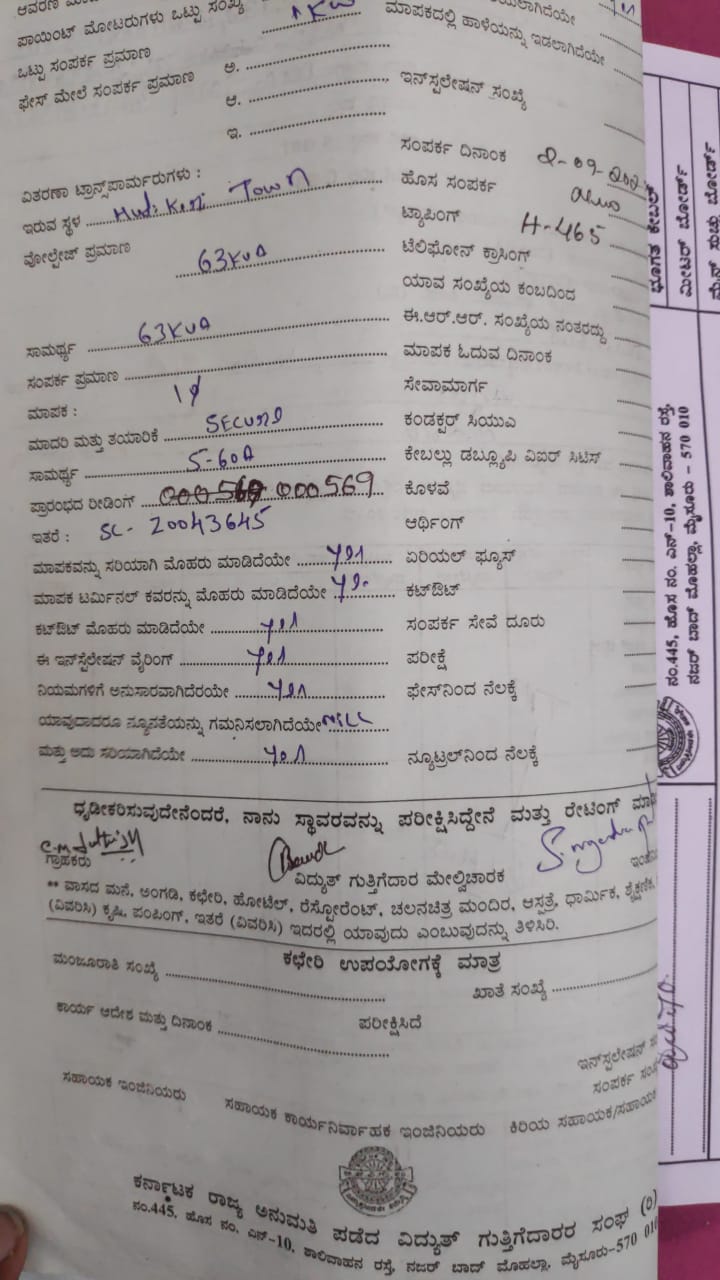 ಪಾಯಿಂಟ್ ಮೋಟರುಗಳು ಒಟ್ಟು ಸಂಖ್ಯೆ
ಮಾಪಕದಲ್ಲಿ ಹಾಳೆಯನ್ನು ಇಡಲಾಗಿದೆಯೇ
ಒಟ್ಟು ಸಂಪರ್ಕ ಪ್ರಮಾಣ
ಫೇಸ್ ಮೇಲೆ ಸಂಪರ್ಕ ಪ್ರಮಾಣ ಅ.
ಆ. ಇನ್‌ಸ್ಟಲೇಷನ್ ಸಂಖ್ಯೆ
ಇ.
ಸಂಪರ್ಕ ದಿನಾಂಕ
ವಿತರಣಾ ಟ್ರಾನ್ಸ್‌ಪಾರ್ಮರುಗಳು :
ಹೊಸ ಸಂಪರ್ಕ
ಇರುವ ಸ್ಥಳ Town
ಟ್ಯಾಪಿಂಗ್ H-465
ವೋಲ್ಟೇಜ್ ಪ್ರಮಾಣ 63KVA
ಟೆಲಿಫೋನ್ ಕ್ರಾಸಿಂಗ್
ಯಾವ ಸಂಖ್ಯೆಯ ಕಂಬದಿಂದ
ಸಾಮರ್ಥ್ಯ 63KVA
ಈ.ಆರ್.ಆರ್. ಸಂಖ್ಯೆಯ ನಂತರದ್ದು
ಸಂಪರ್ಕ ಪ್ರಮಾಣ
ಮಾಪಕ ಓದುವ ದಿನಾಂಕ
ಮಾಪಕ : 1φ
ಸೇವಾಮಾರ್ಗ
ಮಾದರಿ ಮತ್ತು ತಯಾರಿಕೆ
ಕಂಡಕ್ಟರ್ ಸಿಯುಎ
ಸಾಮರ್ಥ್ಯ 5-60A
ಕೇಬಲ್ಲು ಡಬ್ಲ್ಯೂಪಿ ವಿಐರ್ ಸಿಟಿಸ್
ಪ್ರಾರಂಭದ ರೀಡಿಂಗ್ 000569
ಕೊಳವೆ
ಇತರೆ : SC- 20043645
ಆರ್ಥಿಂಗ್
ಮಾಪಕವನ್ನು ಸರಿಯಾಗಿ ಮೊಹರು ಮಾಡಿದೆಯೇ yes
ಏರಿಯಲ್ ಫ್ಯೂಸ್
ಮಾಪಕ ಟರ್ಮಿನಲ್ ಕವರನ್ನು ಮೊಹರು ಮಾಡಿದೆಯೇ
ಕಟ್‌ಔಟ್
ಕಟ್‌ಔಟ್ ಮೊಹರು ಮಾಡಿದೆಯೇ yes
ಸಂಪರ್ಕ ಸೇವೆ ದೂರು
ಈ ಇನ್‌ಸ್ಟೆಲೇಷನ್ ವೈರಿಂಗ್ yes
ಪರೀಕ್ಷೆ
ನಿಯಮಗಳಿಗೆ ಅನುಸಾರವಾಗಿದೆರಯೇ yes
ಫೇಸ್‌ನಿಂದ ನೆಲಕ್ಕೆ
ಯಾವುದಾದರೂ ನ್ಯೂನತೆಯನ್ನು ಗಮನಿಸಲಾಗಿದೆಯೇ
ಮತ್ತು ಅದು ಸರಿಯಾಗಿದೆಯೇ yes
ನ್ಯೂಟ್ರಲ್‌ನಿಂದ ನೆಲಕ್ಕೆ
ಧೃಡೀಕರಿಸುವುದೇನೆಂದರೆ, ನಾನು ಸ್ಥಾವರವನ್ನು ಪರೀಕ್ಷಿಸಿದ್ದೇನೆ ಮತ್ತು ರೇಟಿಂಗ್
ಗ್ರಾಹಕರು
ವಿದ್ಯುತ್ ಗುತ್ತಿಗೆದಾರ ಮೇಲ್ವಿಚಾರಕ
** ವಾಸದ ಮನೆ, ಅಂಗಡಿ, ಕಛೇರಿ, ಹೋಟೆಲ್, ರೆಸ್ಟೋರೆಂಟ್, ಚಲನಚಿತ್ರ ಮಂದಿರ, ಆಸ್ಪತ್ರೆ, ಧಾರ್ಮಿಕ, ಶೈಕ್ಷಣಿಕ,
(ವಿವರಿಸಿ) ಕೃಷಿ, ಪಂಪಿಂಗ್, ಇತರೆ (ವಿವರಿಸಿ) ಇದರಲ್ಲಿ ಯಾವುದು ಎಂಬುವುದನ್ನು ತಿಳಿಸಿರಿ.
ಕಛೇರಿ ಉಪಯೋಗಕ್ಕೆ ಮಾತ್ರ
ಮಂಜೂರಾತಿ ಸಂಖ್ಯೆ
ಖಾತೆ ಸಂಖ್ಯೆ
ಕಾರ್ಯ ಆದೇಶ ಮತ್ತು ದಿನಾಂಕ
ಪರೀಕ್ಷಿಸಿದೆ
ಇನ್‌ಸ್ಟಲೇಷನ್
ಸಂಪರ್ಕ
ಸಹಾಯಕ ಇಂಜಿನಿಯರು ಸಹಾಯಕ ಕಾರ್ಯನಿರ್ವಾಹಕ ಇಂಜಿನಿಯರು ಕಿರಿಯ ಸಹಾಯಕ/ಸಹಾಯಕ
ಕರ್ನಾಟಕ ರಾಜ್ಯ ಅನುಮತಿ ಪಡೆದ ವಿದ್ಯುತ್ ಗುತ್ತಿಗೆದಾರರ ಸಂಘ (ರಿ)
ನಂ.445, ಹೊಸ ನಂ. ಎನ್-10, ಶಾಲಿವಾಹನ ರಸ್ತೆ, ನಜರ್ ಬಾದ್ ಮೊಹಲ್ಲಾ, ಮೈಸೂರು-570 010
ಭೂಗತ ಕೇಬಲ್
ಮೀಟರ್ ಬೋರ್ಡ್
ನಂ.445, ಹೊಸ ನಂ. ಎನ್-10, ಶಾಲಿವಾಹನ ರಸ್ತೆ,
ನಜರ್ ಬಾದ್ ಮೊಹಲ್ಲಾ, ಮೈಸೂರು - 570 010